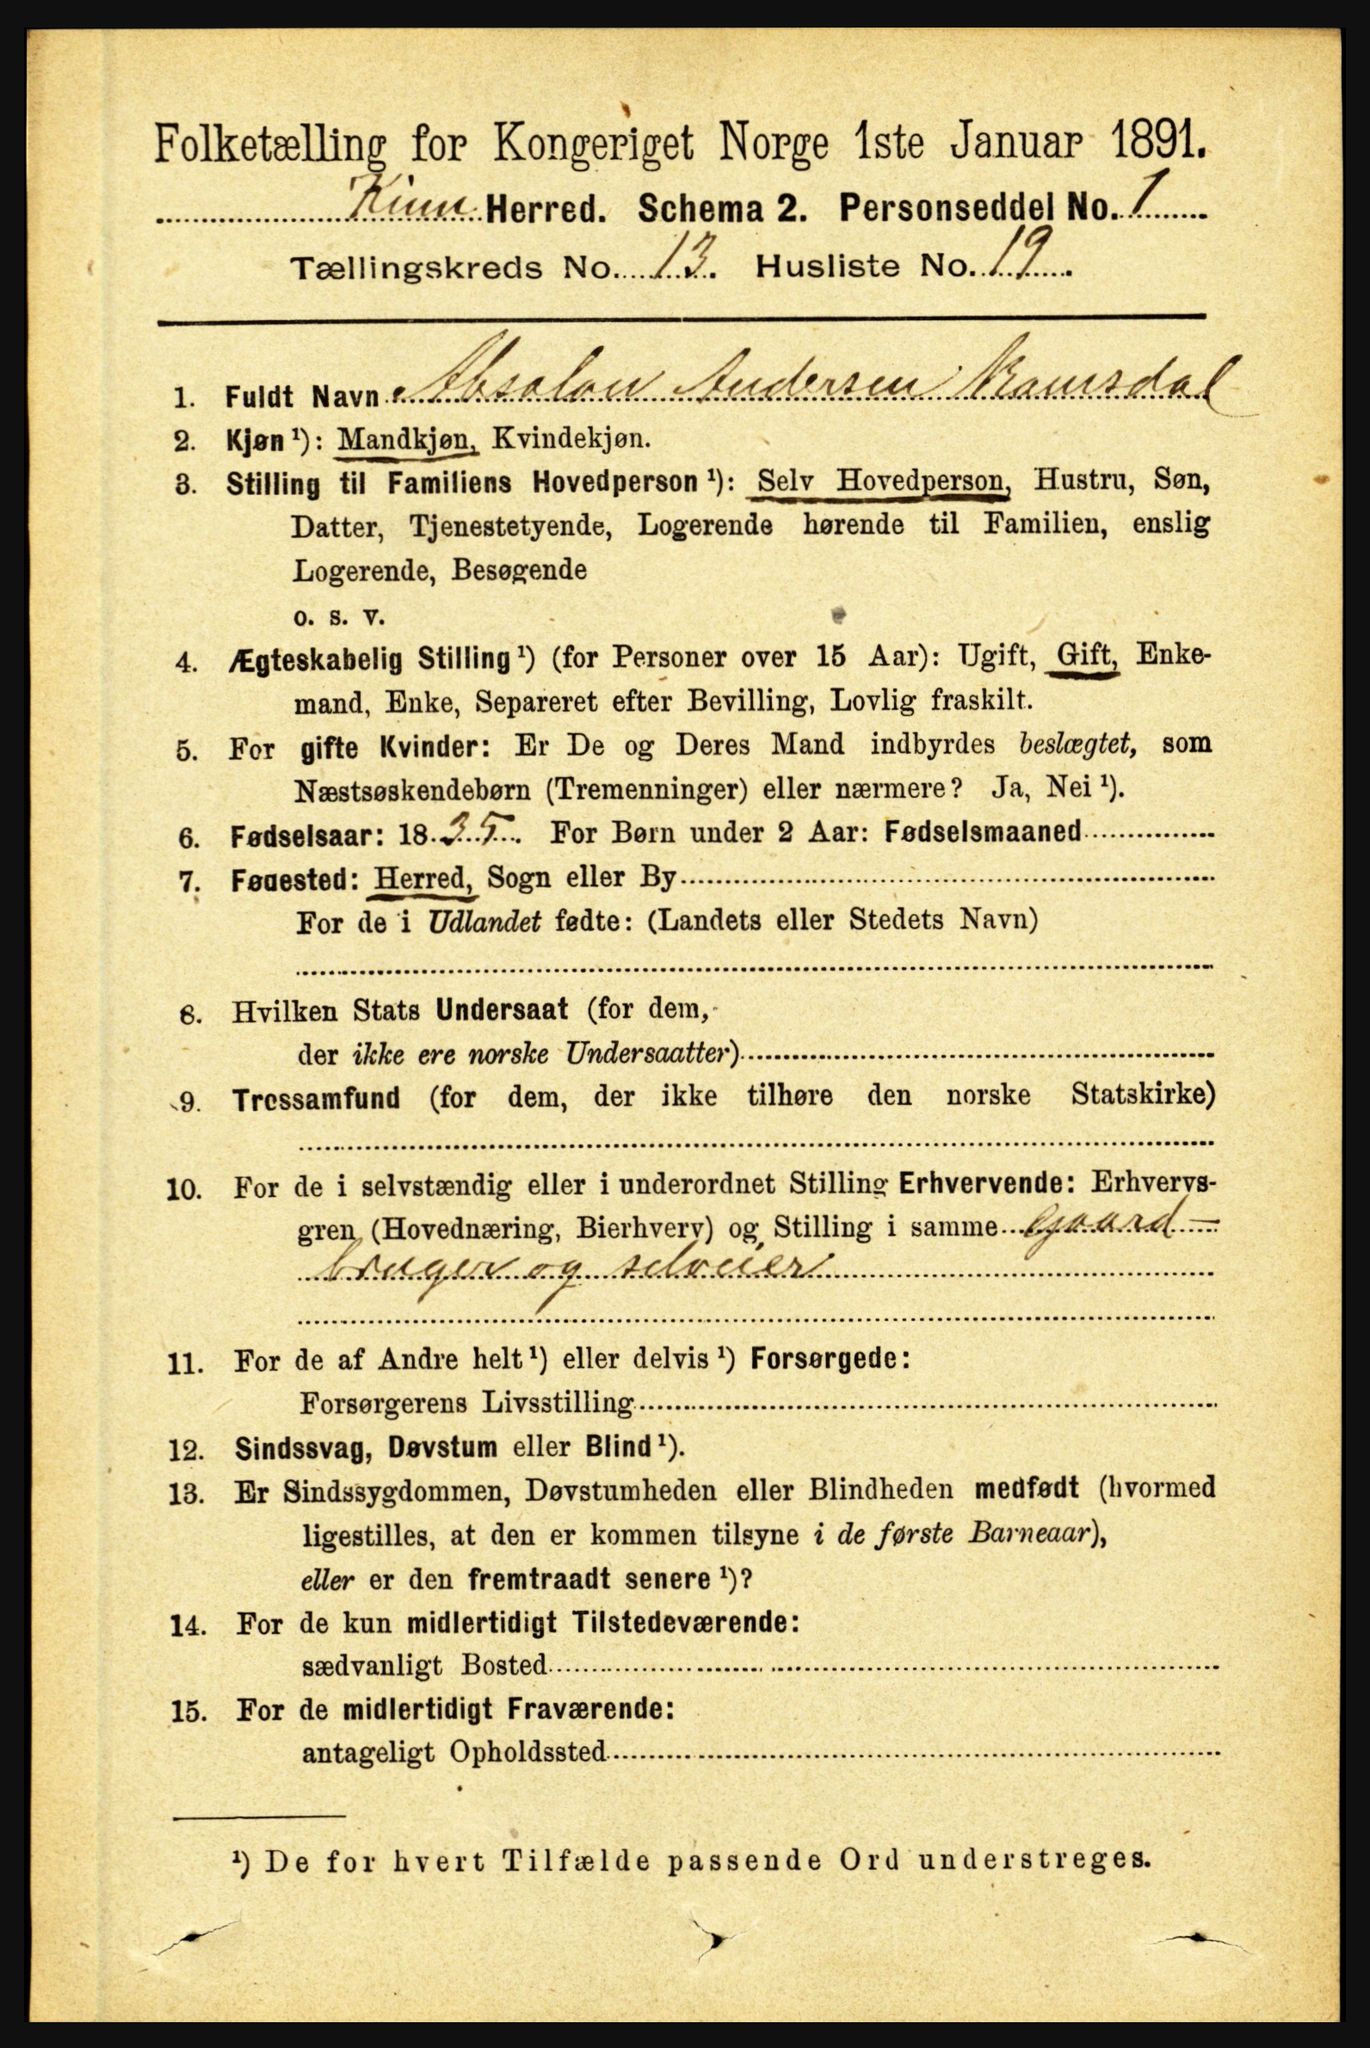 Folketælling for Kongeriget Norge 1ste Januar 1891.
Kinn Herred. Schema 2. Personseddel No. 1
Tællingskreds No. 13. Husliste No. 19
1. Fuldt Navn Absolon Andersen Ramsdal
2. Kjøn ¹): Mandkjøn, Kvindekjøn.
3. Stilling til Familiens Hovedperson ¹): Selv Hovedperson, Hustru, Søn,
Datter, Tjenestetyende, Logerende hørende til Familien, enslig
Logerende, Besøgende
o. s. v.
4. Ægteskabelig Stilling ¹) (for Personer over 15 Aar): Ugift, Gift, Enke-
mand, Enke, Separeret efter Bevilling, Lovlig fraskilt.
5. For gifte Kvinder: Er De og Deres Mand indbyrdes beslægtet, som
Næstsøskendebørn (Tremenninger) eller nærmere? Ja, Nei ¹).
6. Fødselsaar: 1835. For Børn under 2 Aar: Fødselsmaaned
7. Fødested: Herred, Sogn eller By
For de i Udlandet fødte: (Landets eller Stedets Navn)
8. Hvilken Stats Undersaat (for dem,
der ikke ere norske Undersaatter)
9. Trossamfund (for dem, der ikke tilhøre den norske Statskirke)
10. For de i selvstændig eller i underordnet Stilling Erhvervende: Erhvervs-
gren (Hovednæring, Bierhverv) og Stilling i samme Gaard-
bruger og selveier
11. For de af Andre helt ¹) eller delvis ¹) Forsørgede:
Forsørgerens Livsstilling
12. Sindssvag, Døvstum eller Blind ¹).
13. Er Sindssygdommen, Døvstumheden eller Blindheden medfødt (hvormed
ligestilles, at den er kommen tilsyne i de første Barneaar),
eller er den fremtraadt senere ¹)?
14. For de kun midlertidigt Tilstedeværende:
sædvanligt Bosted
15. For de midlertidigt Fraværende:
antageligt Opholdssted
¹) De for hvert Tilfælde passende Ord understreges.